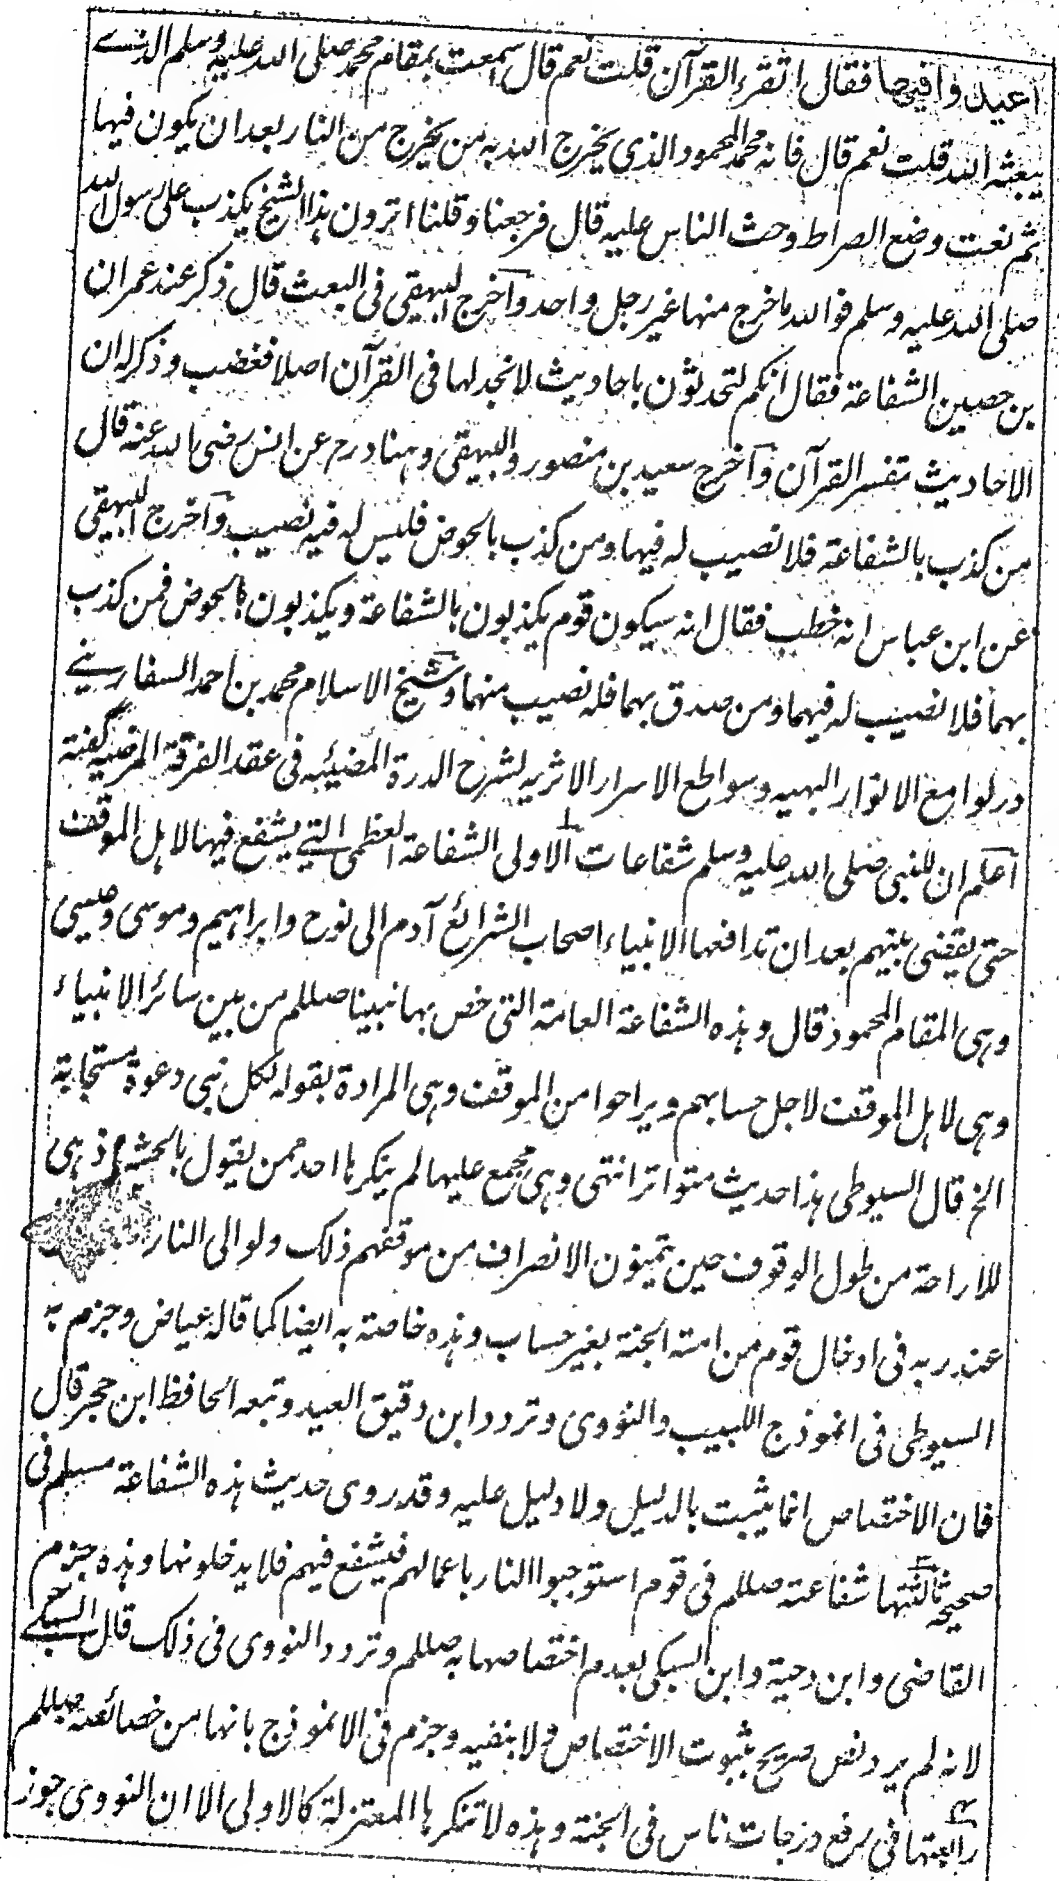 اعيد وافيها فقال اتقرء القرآن قلت نعم قال سمعت بمقام محمد صلى الله عليه وسلم الذے
يبعثه الله قلت نعم قال فانه محمد المحمود الذي يخرج الله به من يخرج من النار بعد ان يكون فيها
ثم نعت وضع الصراط وحث الناس عليه قال فرجعنا وقلنا اترون هذا الشيخ يكذب على رسول الله
صلى الله عليه وسلم فوالله ما خرج منها غير رجل واحد وآخرج البيهقي فى البعث قال ذكر عند عمران
بن حصين الشفاعة فقال انكم لتحدثون باحاديث لا نجد لها فى القرآن اصلا فغضب وذكر له ان
الاحاديث تفسر القرآن وآخرج سعيد بن منصور والبيهقي وهناد رح عن انس رضى الله عنه قال
من كذب بالشفاعة فلا نصيب له فيها ومن كذب بالحوض فليس له فيه نصيب وآخرج البيهقي
عن ابن عباس انه خطب فقال انه سيكون قوم يكذبون بالشفاعة ويكذبون بالحوض فمن كذب
بهما فلا نصيب له فيهما ومن صدق بهما فله نصيب منهما وشيخ الاسلام محمد بن احمد السفارينے
در لوامع الانوار البهيه وسواطع الاسرار الاثريه لشرح الدرة المضيئه فى عقد الفرقة المرضيه گفته
اعلم ان للنبى صلى الله عليه وسلم شفاعات الاولى الشفاعة العظمى التے يشفع فيها لاهل الموقف
حتى يقضى بينهم بعد ان تدافعها الانبياء اصحاب الشرائع آدم الى نوح وابراهيم وموسى وعيسى
وهى المقام المحمود قال وهذه الشفاعة العامة التى خص بها نبينا صللم من بين سائر الانبياء
وهى لاهل الموقف لاجل حسابهم ويراحوا من الموقف وهى المرادة بقوله لكل نبى دعوة مستجابة
الخ قال السيوطى هذا حديث متواتر انتهى وهى مجمع عليها لم ينكرها احد ممن يقول بالحشر اذ هى
للاراحة من طول الوقوف حين يتمنون الانصراف من موقفهم ذلك ولو الى النار
عند ربه فى ادخال قوم من امته الجنة بغير حساب وهذه خاصة به ايضا كما قاله عياض وجزم به
السيوطى فى انموذج اللبيب والنووى وتردد ابن دقيق العيد وتبعه الحافظ ابن حجر قال
فان الاختصاص انما يثبت بالدليل ولا دليل عليه وقد روى حديث هذه الشفاعة مسلم فى
صحيحه ثالثتها شفاعته صللم فى قوم استوجبوا النار باعمالهم فيشفع فيهم فلا يدخلونها وهذه جزم
القاضى وابن دحية وابن السبكى بعدم اختصاصها به صللم وتردد النووى فى ذلك قال السبكے
لانه لم يرد نص صريح بثبوت الاختصاص ولا بنفيه وجزم فى الانموذج بانها من خصائصه صللم
رابعتها فى رفع درجات ناس فى الجنة وهذه لا تنكرها المعتزلة كالاولى الا ان النووى جوز